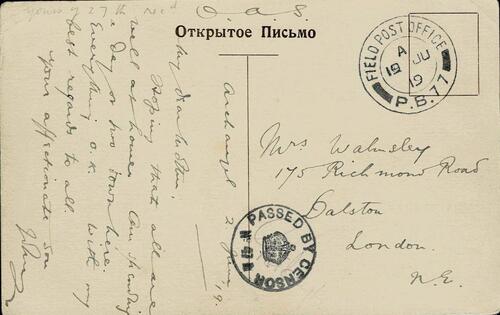 Yours of 27th rec'd
O. A. S.
Открытое Письмо
Archangel 2 June /19.
My dear Mother.
Hoping that all are
well at home. Am spending
a day or two down here.
Everything O.K. With my
best regards to all.
Your affectionate son
Mrs Walmsley
175 Richmond Road
Dalston
London.
N.E.
FIELD POST OFFICE
A
19 JU
19
P.B.77
PASSED BY CENSOR